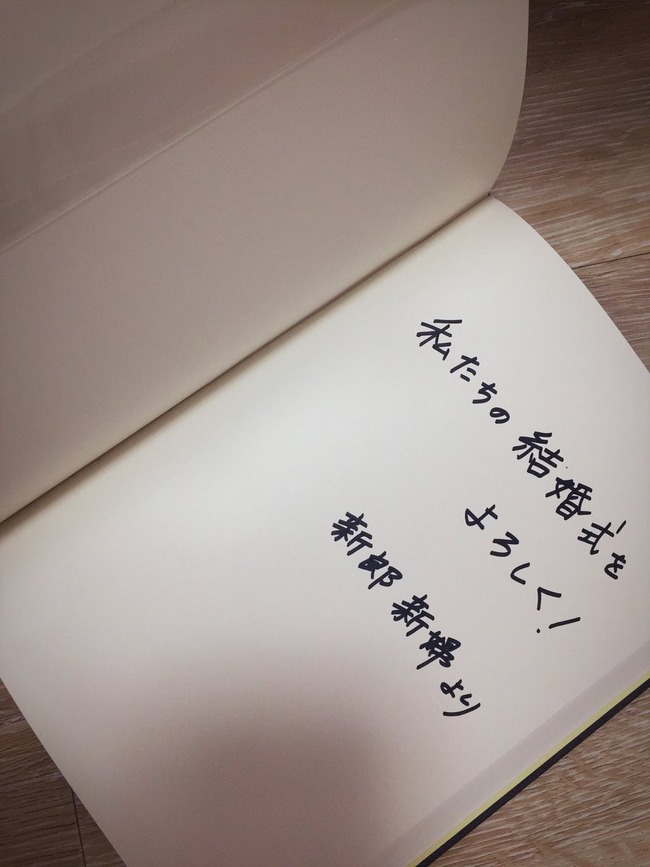 私たちの結婚式を
よろしく!
新郎新婦より